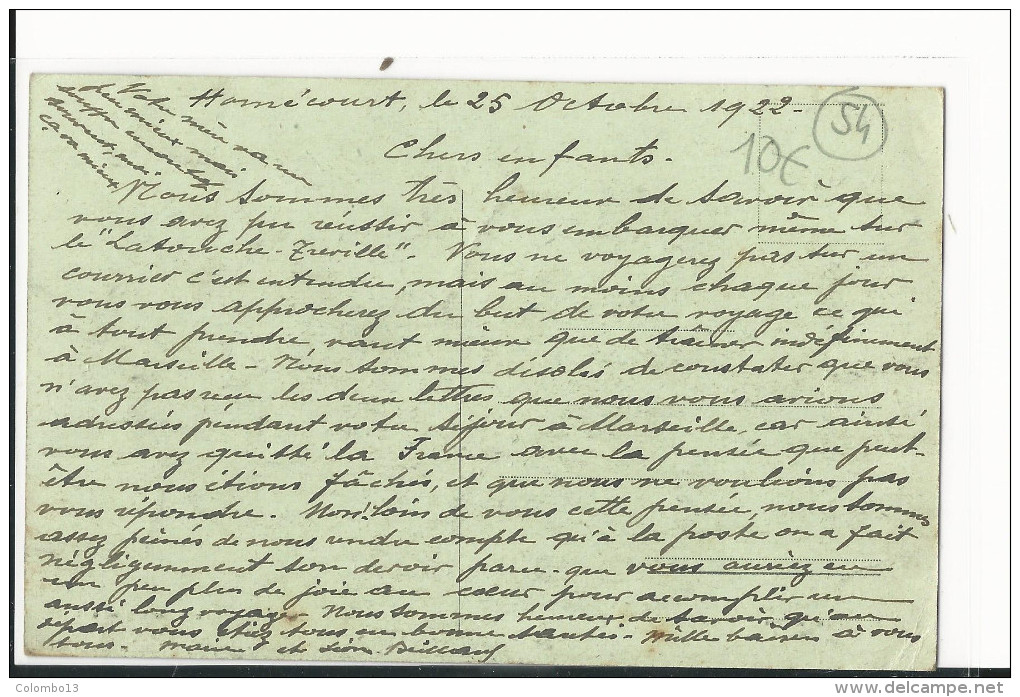 Homécourt, le 25 Octobre 1922-
54
10€
Chers enfants.
Votre mère va un
peu mieux mais
ça va mieux
Nous sommes très heureux de savoir que
vous avez pu réussir à vous embarquer même sur
le "Latouche-Treville". Vous ne voyagerez pas sur un
courrier c'est entendu, mais au moins chaque jour
vous vous approcherez du but de votre voyage ce qui
à tout prendre vaut mieux que de traîner indéfiniment
à Marseille - Nous sommes désolés de constater que vous
n'avez pas reçu les deux lettres que nous vous avions
adressées pendant votre séjour à Marseille, car ainsi
vous avez quitté la France avec la pensée que peut-
être nous étions fâchés, et que nous ne voulions pas
vous répondre. Non! loin de vous cette pensée, nous sommes
assez peinés de nous rendre compte qu'à la poste on a fait
négligemment son devoir parce-que vous auriez eu
un peu plus de joie au cœur pour accomplir un
aussi long voyage - Nous sommes heureux de savoir qu'au
départ vous étiez tous en bonne santé - Mille baisers à vous
tous - et
Colombo13
www.delcampe.net